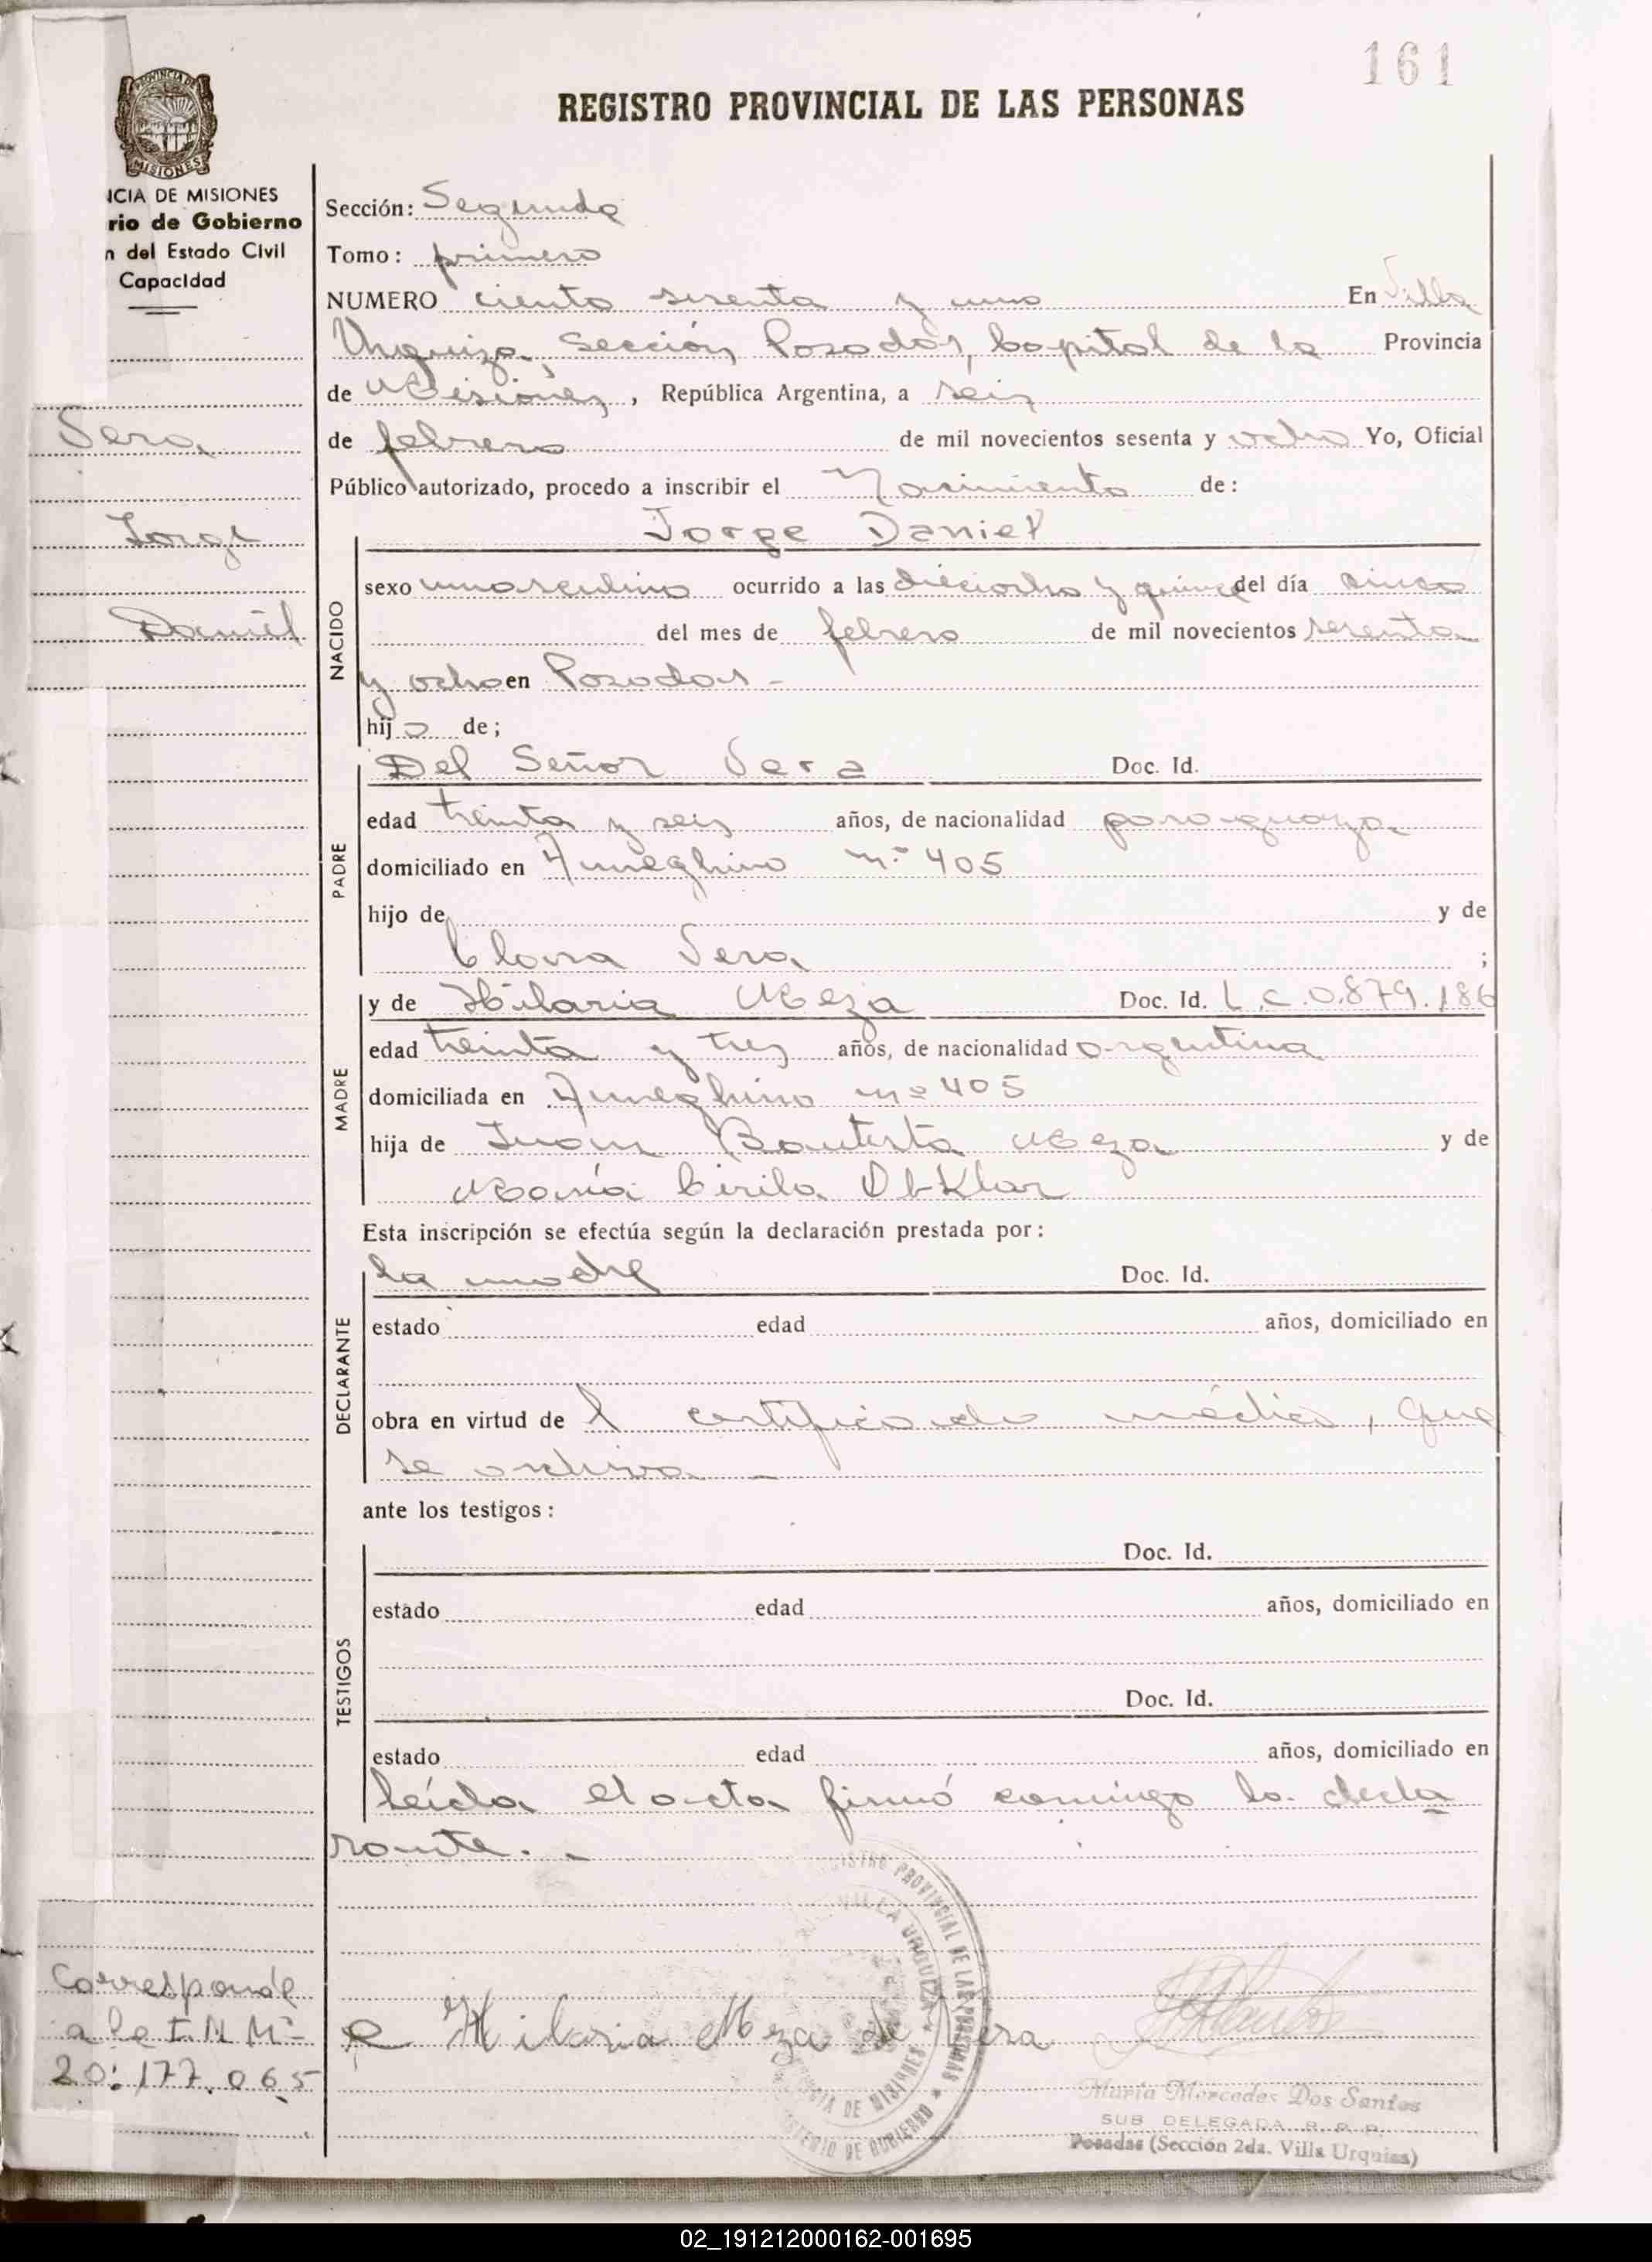 161
REGISTRO PROVINCIAL DE LAS PERSONAS
PROVINCIA DE
MISIONES
NCIA DE MISIONES
rio de Gobierno
n del Estado Civil
Capacidad
Sección: Segunda
Tomo: primero
NUMERO ciento sesenta y uno En Villa
Urquiza, Sección Posadas, Capital de la Provincia
de Misiones, República Argentina, a seis
de febrero de mil novecientos sesenta y ocho Yo, Oficial
Público autorizado, procedo a inscribir el Nacimiento de:
Vera
Jorge
Daniel
NACIDO
Jorge Daniel
sexo masculino ocurrido a las dieciocho y quince del día cinco
del mes de febrero de mil novecientos sesenta
y ocho en Posadas -
hijo de;
PADRE
Del Señor Vera Doc. Id.
edad treinta y seis años, de nacionalidad paraguaya
domiciliado en Ameghino nº 405
hijo de y de
Clara Vera ;
MADRE
y de Hilaria Meza Doc. Id. L.C.0.879.186
edad treinta y tres años, de nacionalidad argentina
domiciliada en Ameghino nº 405
hija de Juan Bautista Meza y de
María Cirila
Esta inscripción se efectúa según la declaración prestada por:
DECLARANTE
la madre Doc. Id.
estado edad años, domiciliado en
obra en virtud de l certificado médico, que
se archiva -
ante los testigos:
TESTIGOS
Doc. Id.
estado edad años, domiciliado en
Doc. Id.
estado edad años, domiciliado en
Leída el acta firmó conmigo la decla
rante. -
Corresponde
a la
20.177.065
Hilaria Meza de Vera
REGISTRO PROVINCIAL DE LAS PERSONAS
VILLA URQUIZA
PROVINCIA DE MISIONES
MINISTERIO DE GOBIERNO
María Mercedes Dos Santos
SUB DELEGADA R. P. P.
Posadas (Sección 2da. Villa Urquiza)
02_191212000162-001695